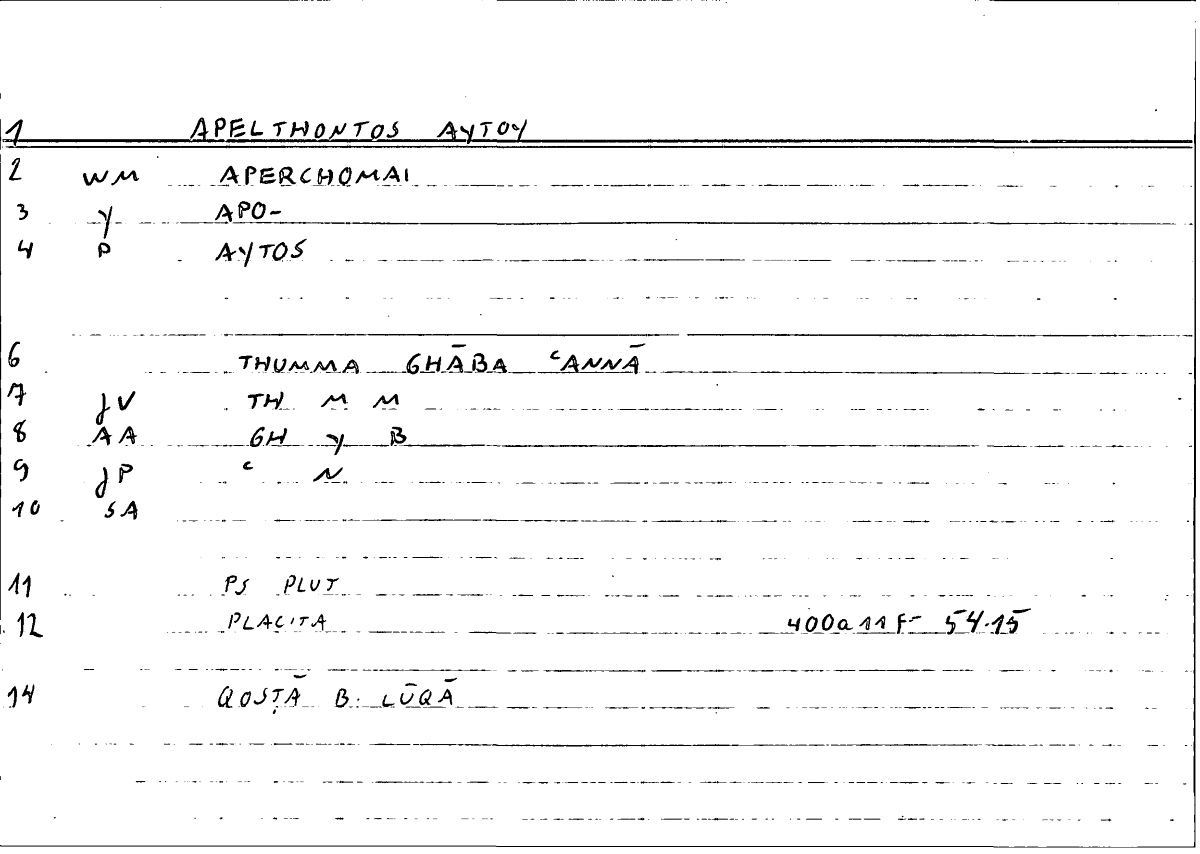 1 APELTHONTOS AYTOY
2 WM APERCHOMAI
3 Y APO-
4 P AYTOS
6 THUMMA GHĀBA ʿANNĀ
7 JV TH M M
8 AA GH Y B
9 JP ʿ N
10 SA
11 PS PLUT
12 PLACITA 400a11F- 54.15
14 QOSṬĀ B. LŪQĀ